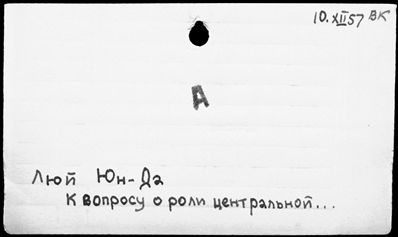 10.XII57 ВК
А
Люй Юн-Да
К вопросу о роли центральной...